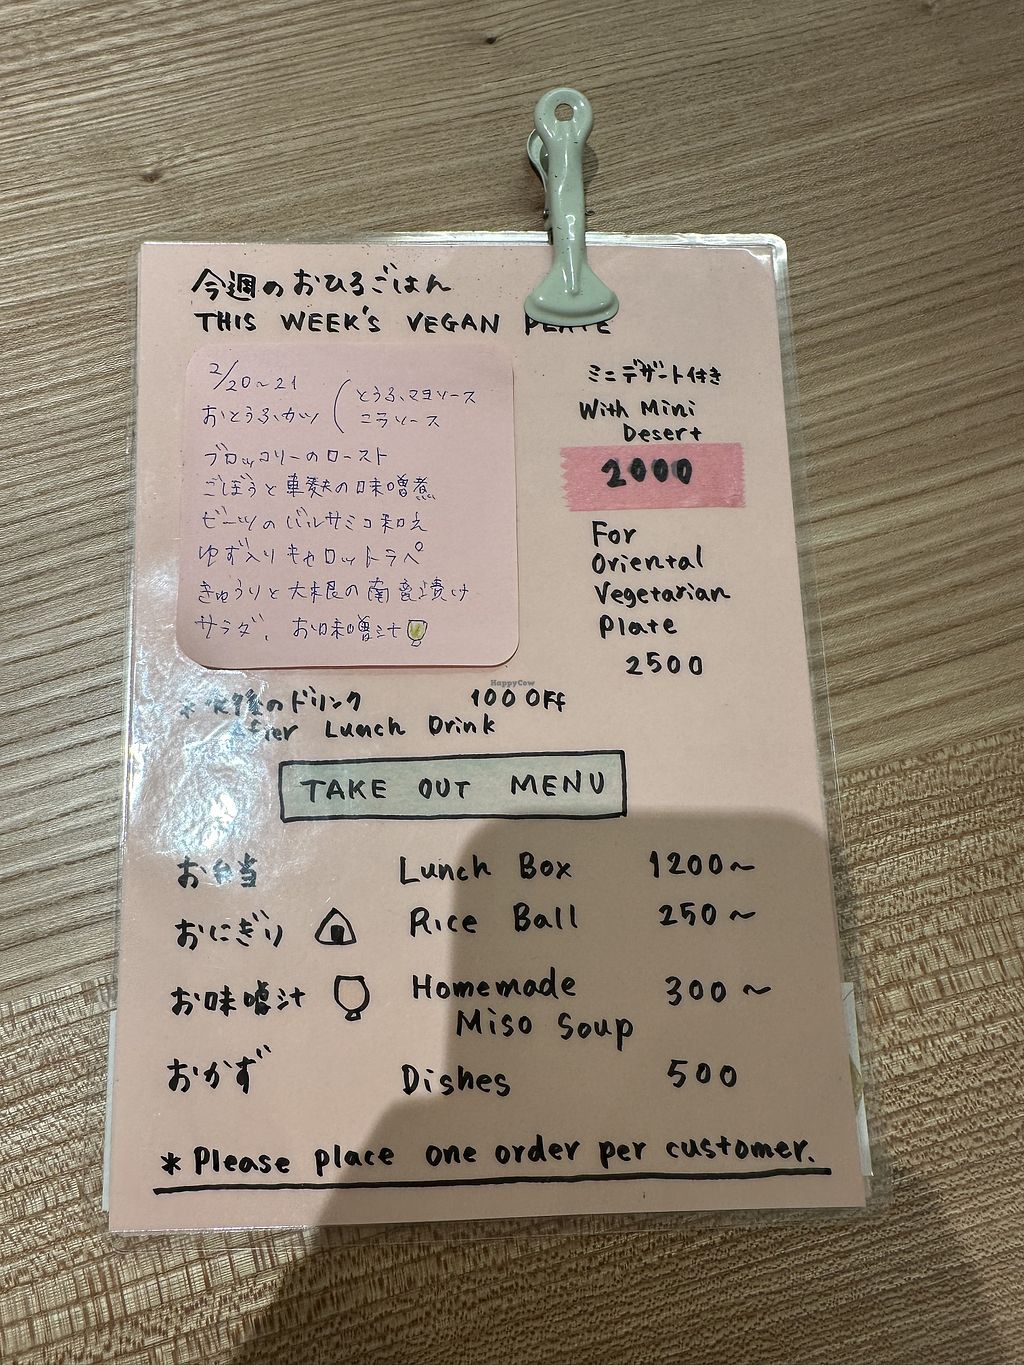 今週のおひるごはん
THIS WEEK'S VEGAN PLATE
2/20~21
おとうふカツ(とうふマヨソース
ニラソース
ブロッコリーのロースト
ごぼうと車麩の味噌煮
ビーツのバルサミコ和え
ゆず入りキャロットラペ
きゅうりと大根の南蛮漬け
サラダ、お味噌汁
ミニデザート付き
With Mini
Desert
2000
For
Oriental
Vegetarian
Plate
2500
HappyCow
*食後のドリンク 100 OFF
After Lunch Drink
TAKE OUT MENU
お弁当 Lunch Box 1200~
おにぎり Rice Ball 250~
お味噌汁 Homemade 300~
Miso Soup
おかず Dishes 500
*Please place one order per customer.